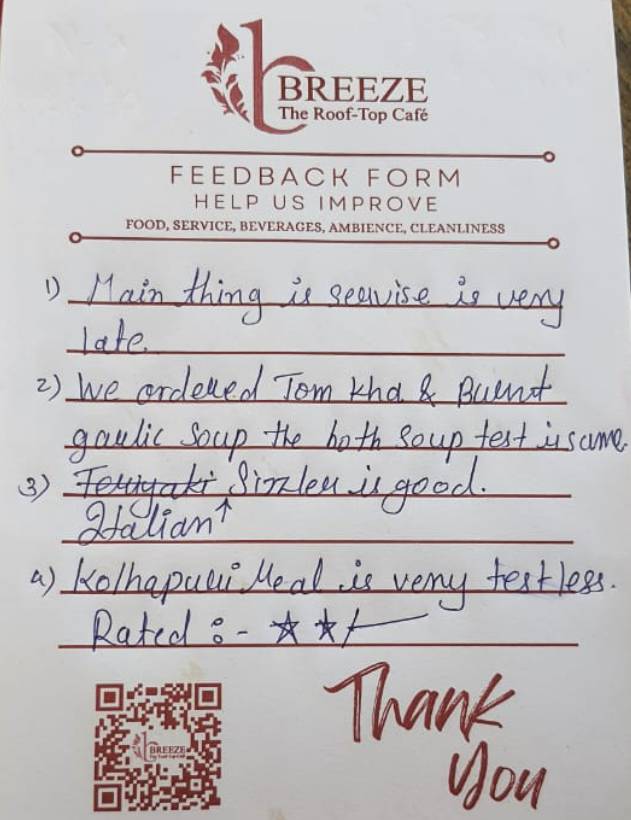 BREEZE
The Roof-Top Café
FEEDBACK FORM
HELP US IMPROVE
FOOD, SERVICE, BEVERAGES, AMBIENCE, CLEANLINESS
1) Main thing is seervise is very
late.
2) We ordered Tom Kha & Burnt
garlic Soup the both soup test is same.
3) Teriyaki Sizzler is good.
Italian↑
4) Kolhapuri Meal is very testless.
Rated :- ☆ ☆
BREEZE
The Roof-Top Café
Thank
You